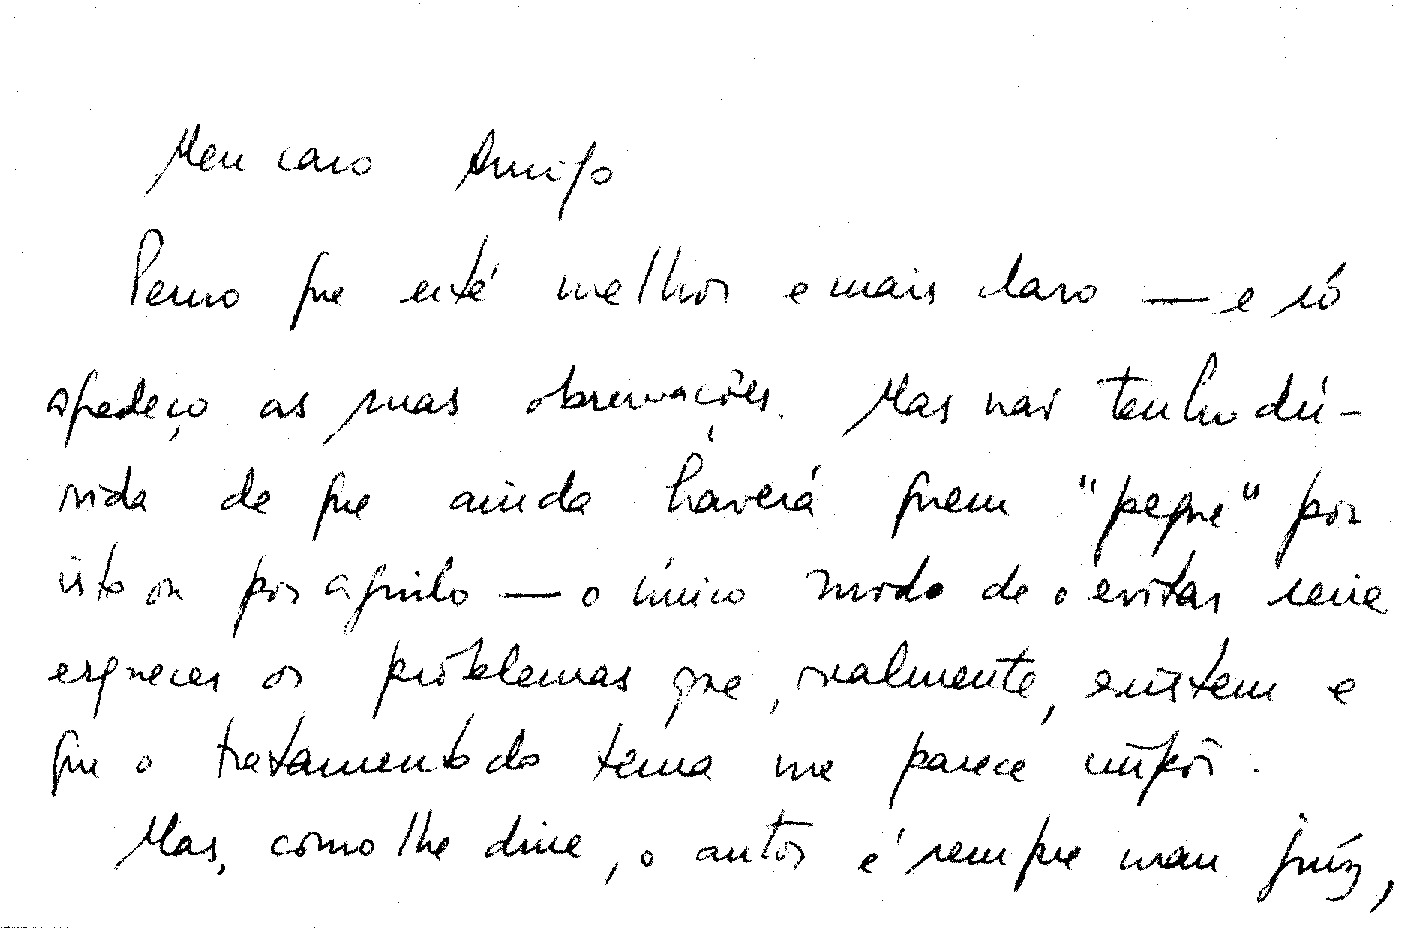 Meu caro Amigo
Penso que está melhor e mais claro — e só
agradeço as suas observações. Mas não tenho dú-
vida de que ainda haverá quem "pegue" por
isto ou por aquilo — o único modo de o evitar seria
esquecer os problemas que, realmente, existem e
que o tratamento do tema me parece impor.
Mas, como lhe disse, o autor é sempre mau juiz,